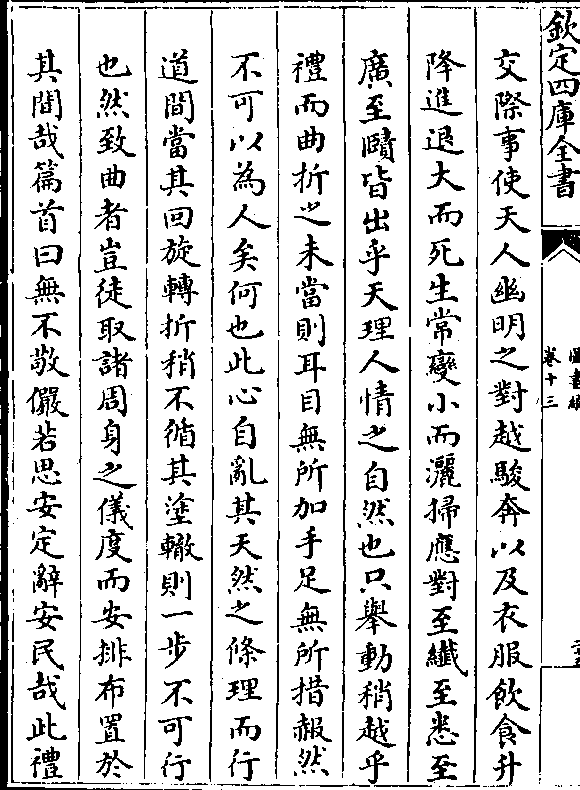 欽定四庫全書
圖書編
卷十三
交際事使天人幽明之對越駿奔以及衣服飲食升
降進退大而死生常變小而灑掃應對至纖至悉至
廣至賾皆出乎天理人情之自然也只舉動稍越乎
禮而曲折之未當則耳目無所加手足無所措赧然
不可以為人矣何也此心自亂其天然之條理而行
道間當其回旋轉折稍不循其塗轍則一步不可行
也然致曲者豈徒取諸周身之儀度而安排布置於
其間哉篇首曰無不敬儼若思安定辭安民哉此禮